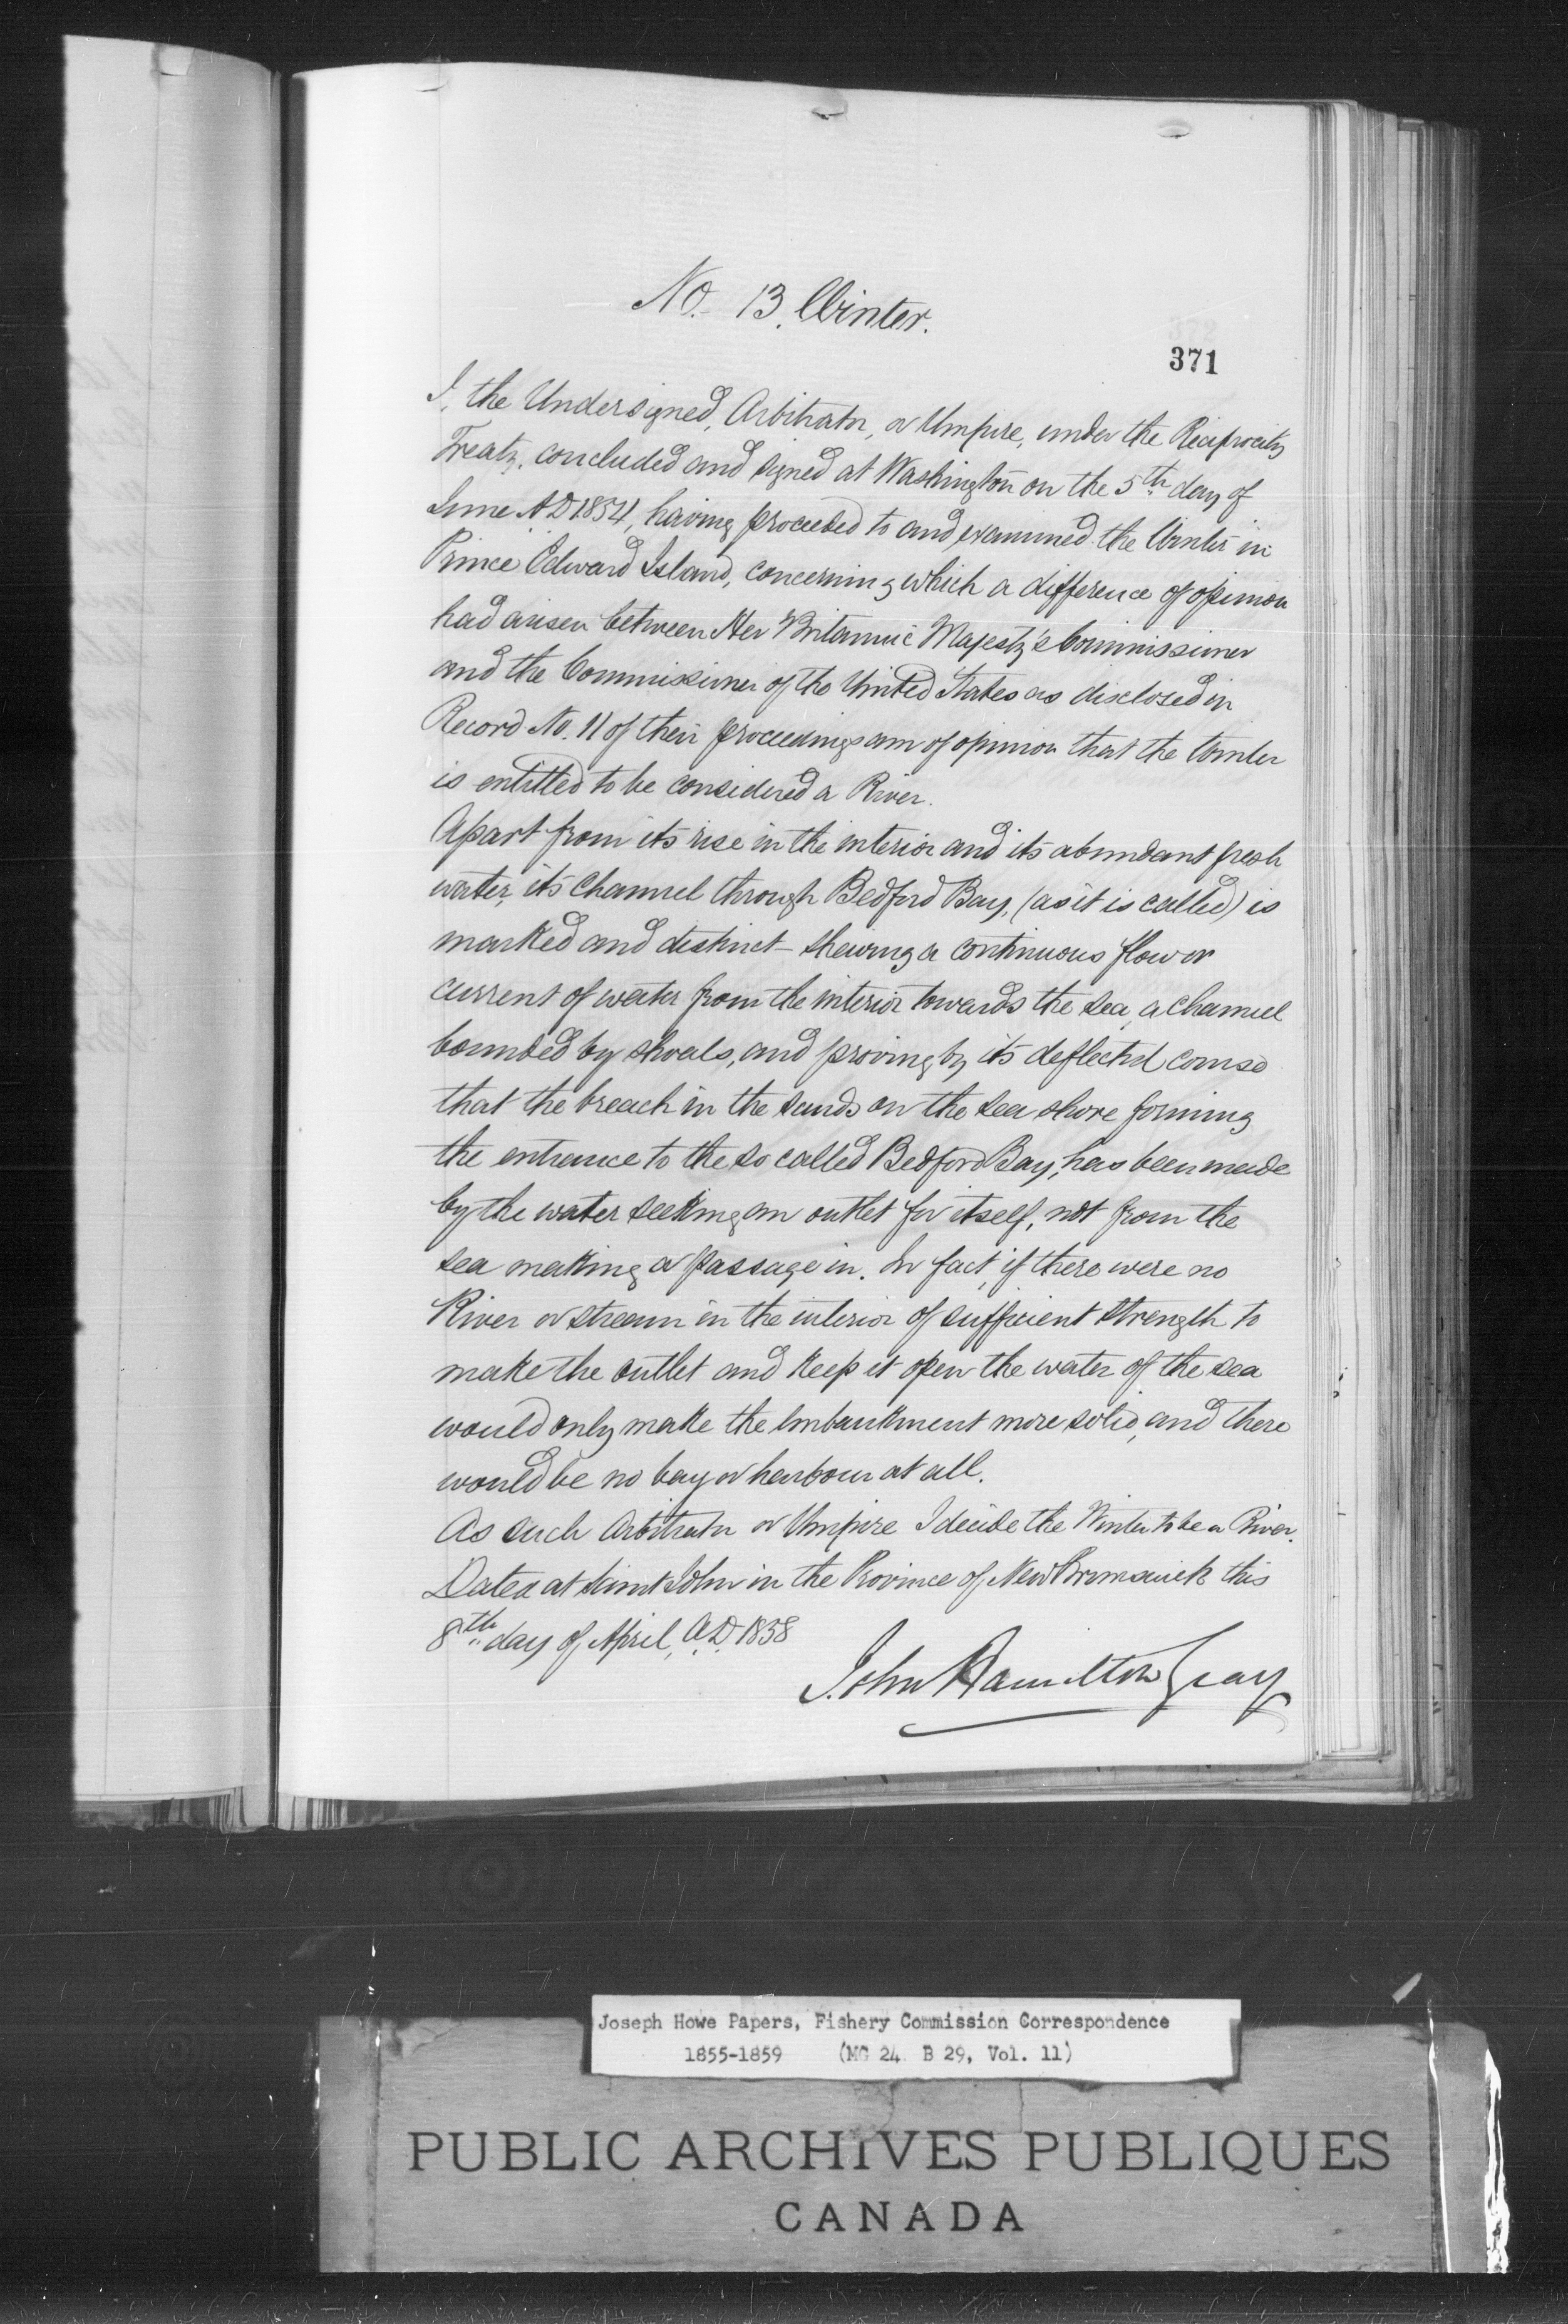 No. 13. Winter.
371
I, the Undersigned, Arbitrator, or Umpire, under the Reciprocity
Treaty, concluded and signed at Washington on the 5th day of
June A.D 1854, having proceeded to and examined the Winter in
Prince Edward Island, concerning which a difference of opinion
had arisen between Her Britannic Majesty's Commissioner
and the Commissioner of the United States as disclosed in
Record No. 11 of their proceedings am of opinion that the Winter
is entitled to be considered a River.
Apart from its rise in the interior and its abundant fresh
water, its Channel through Bedford Bay, (as it is called) is
marked and distinct - shewing a continuous flow or
current of water from the interior towards the sea, a channel
bounded by shoals, and proving by its deflected course
that the breach in the sands on the sea shore forming
the entrance to the so called Bedford Bay, has been made
by the water seeking an outlet for itself, not from the
sea making a passage in. In fact, if there were no
River or stream in the interior of sufficient strength to
make the outlet and keep it open the water of the sea
would only make the Embankment more solid, and there
would be no bay or harbour at all.
As such Arbitrator or Umpire I decide the Winter to be a River.
Dated at Saint John in the Province of New Brunswick this
8th day of April, A.D. 1858
John Hamilton Gray
Joseph Howe Papers, Fishery Commission Correspondence
1855-1859 (MG 24 B 29, Vol. 11)
PUBLIC ARCHIVES PUBLIQUES
CANADA